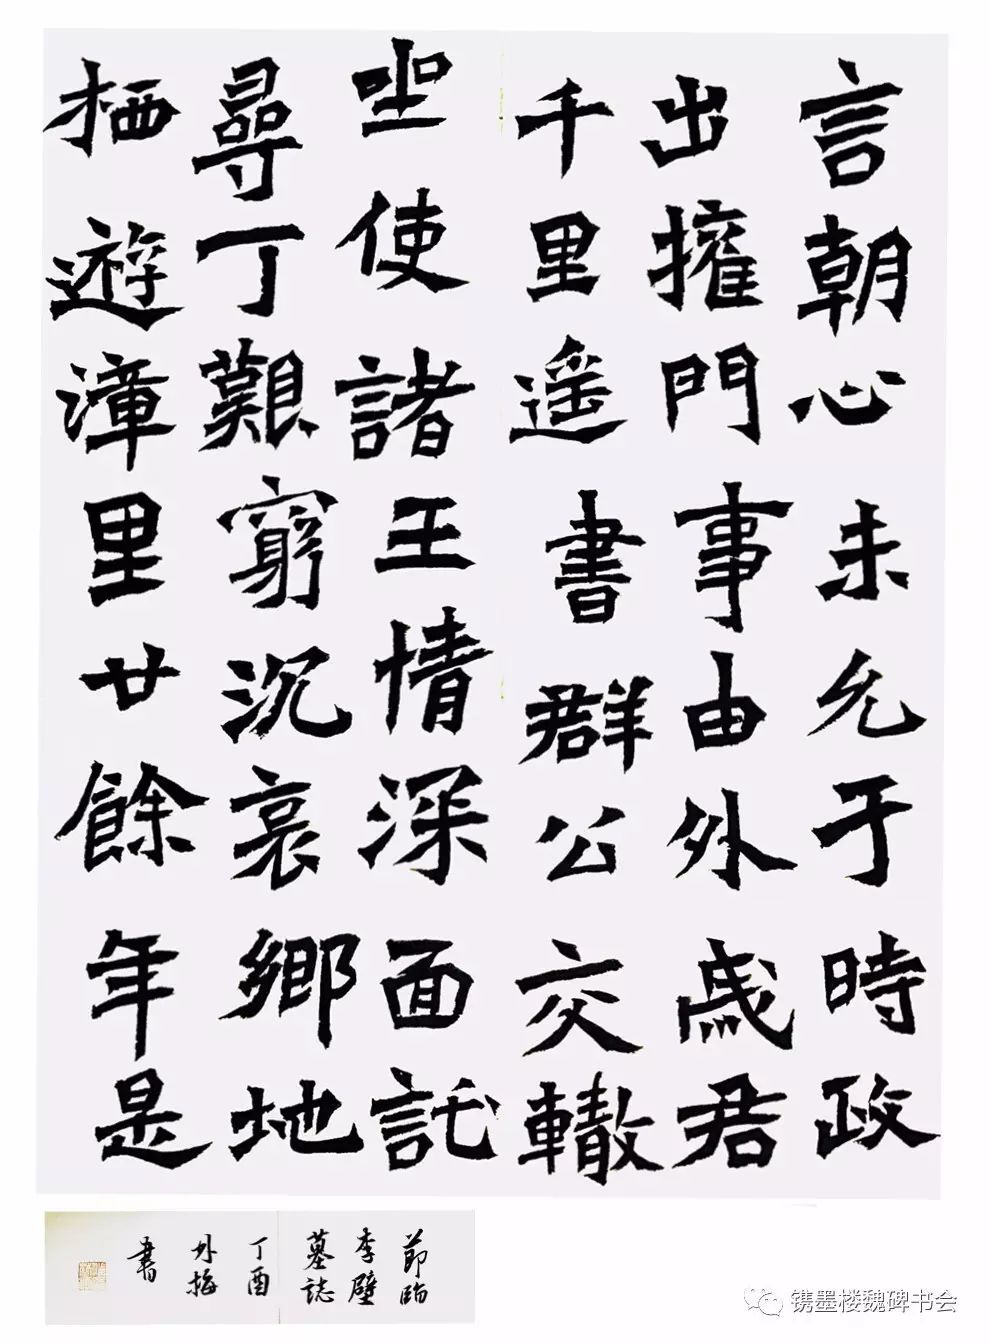 言朝心未允于時政
出權門事由外戚君
千里遥書群公交轍
坐使諸王情深面託
尋丁艱窮沉哀鄉地
栖遊漳里廿餘年是
節臨
李璧
墓誌
丁酉
外梅
書
镌墨楼魏碑书会